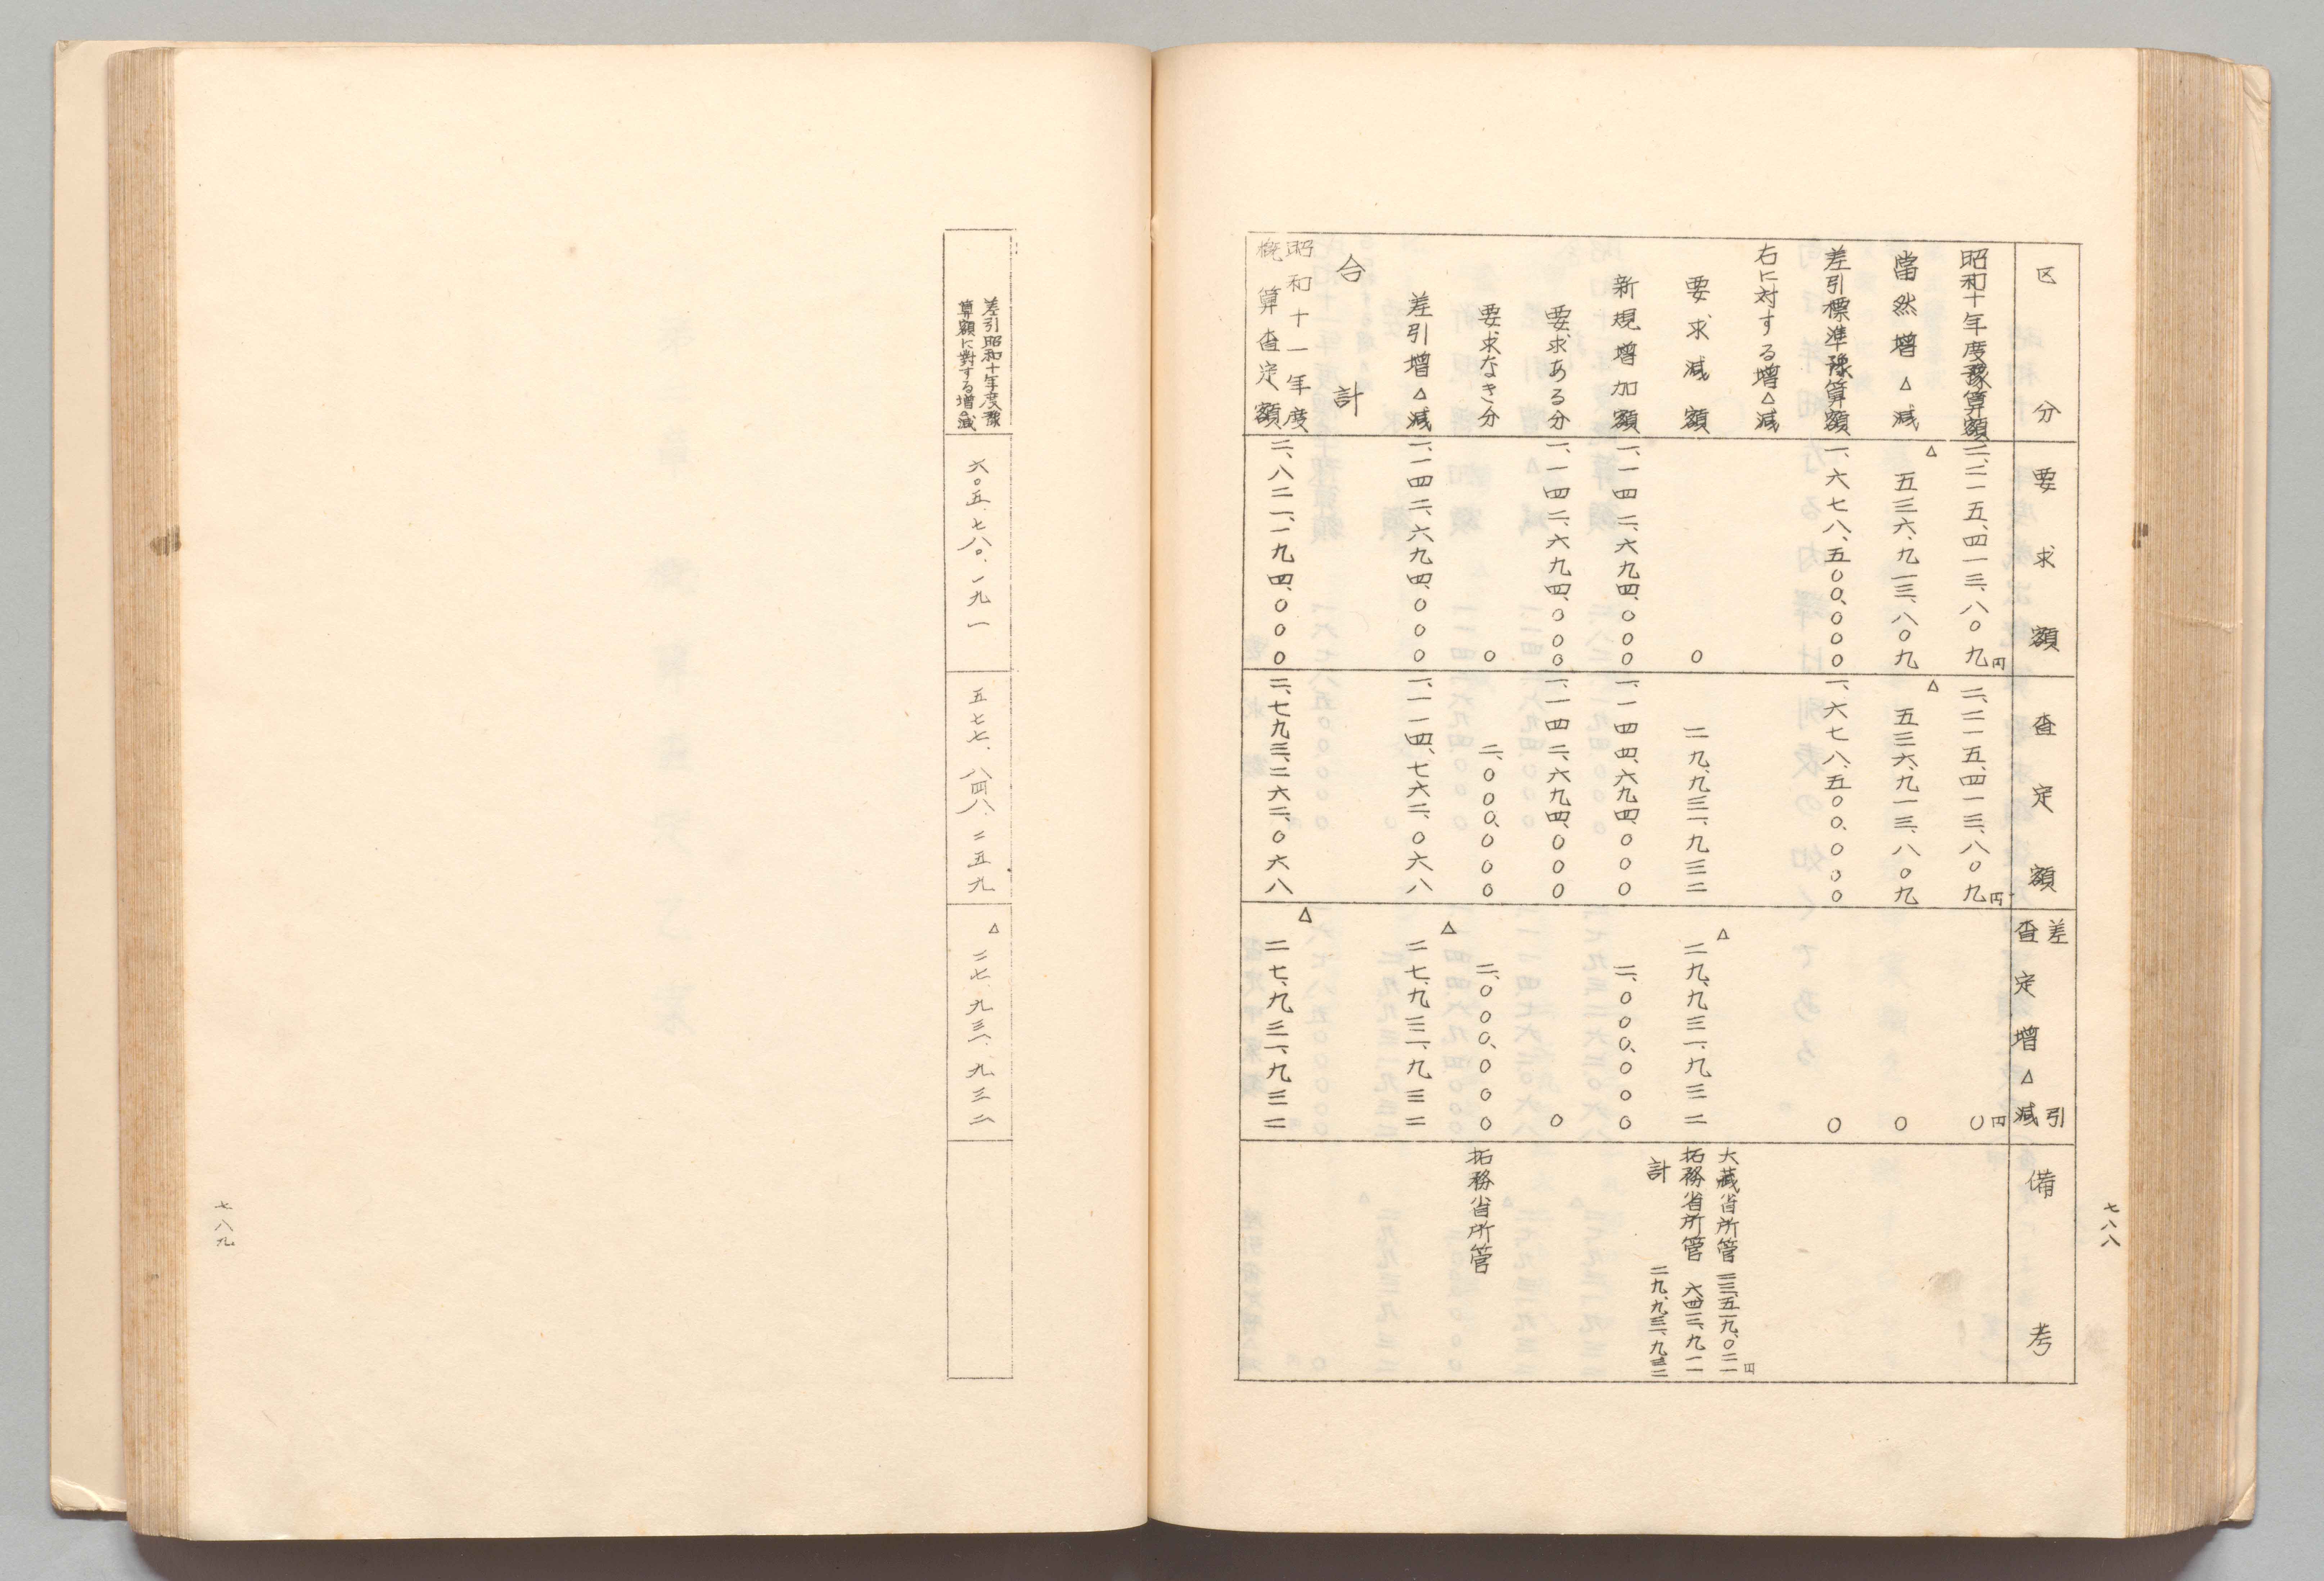 七八八
区分
要求額
査定額
差引
査定増△減
備考
昭和十年度豫算額
二、二一五、四一三、八〇九円
二、二一五、四一三、八〇九円
〇円
當然増△減
△五三六、九一三、八〇九
△五三六、九一三、八〇九
〇
差引標準豫算額
一、六七八、五〇〇、〇〇〇
一、六七八、五〇〇、〇〇〇
〇
右に対する増△減
要求減額
〇
二九、九三一、九三二
△二九、九三一、九三二
大藏省所管 二三、五一九、〇二一円
拓務省所管 六、四一二、九一一
計 二九、九三一、九三二
新規増加額
一、一四二、六九四、〇〇〇
一、一四四、六九四、〇〇〇
二、〇〇〇、〇〇〇
要求ある分
一、一四二、六九四、〇〇〇
一、一四二、六九四、〇〇〇
〇
要求なき分
〇
二、〇〇〇、〇〇〇
二、〇〇〇、〇〇〇
拓務省所管
差引増△減
一、一四二、六九四、〇〇〇
一、一一四、七六二、〇六八
△二七、九三一、九三二
合計
昭和十一年度
概算査定額
二、八二一、一九四、〇〇〇
二、七九三、二六二、〇六八
△二七、九三一、九三二
差引昭和十年度豫
算額に對する増△減
六〇五、七八〇、一九一
五七七、八四八、二五九
△二七、九三一、九三二
七八九